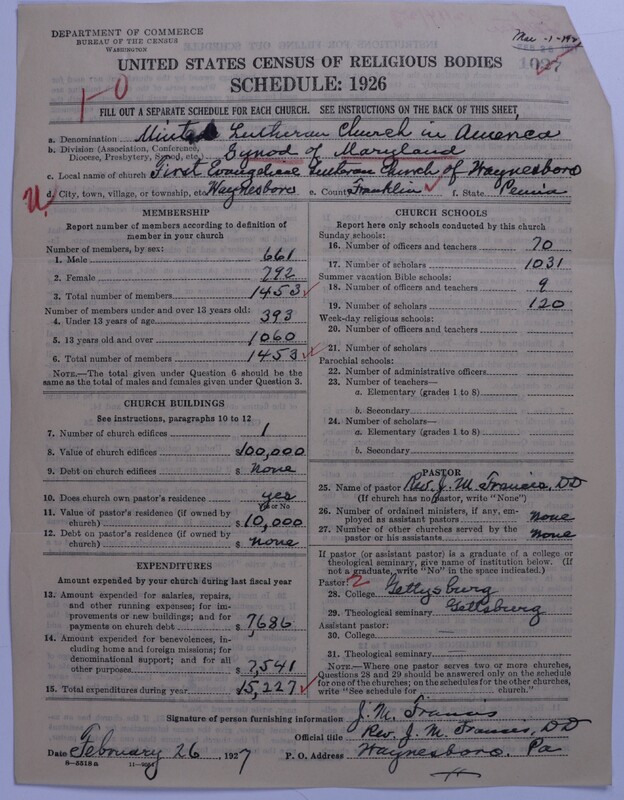 DEPARTMENT OF COMMERCE
BUREAU OF THE CENSUS
WASHINGTON
Mar -1-1927
1927
UNITED STATES CENSUS OF RELIGIOUS BODIES
SCHEDULE: 1926
1-0
FILL OUT A SEPARATE SCHEDULE FOR EACH CHURCH. SEE INSTRUCTIONS ON THE BACK OF THIS SHEET
a. Denomination United Lutheran Church in America
b. Division (Association, Conference, Diocese, Presbytery, Synod, etc.) Synod of Maryland
c. Local name of church First Evangelical Lutheran Church of Waynesboro
d. City, town, village, or township, etc. Waynesboro e. County Franklin f. State Penna
MEMBERSHIP
Report number of members according to definition of member in your church
Number of members, by sex:
1. Male 661
2. Female 792
3. Total number of members 1453
Number of members under and over 13 years old:
4. Under 13 years of age 393
5. 13 years old and over 1060
6. Total number of members 1453
NOTE.—The total given under Question 6 should be the same as the total of males and females given under Question 3.
CHURCH BUILDINGS
See instructions, paragraphs 10 to 12
7. Number of church edifices 1
8. Value of church edifices $100,000
9. Debt on church edifices $ None
10. Does church own pastor's residence yes
Yes or No
11. Value of pastor's residence (if owned by church) $ 10,000
12. Debt on pastor's residence (if owned by church) $ None
EXPENDITURES
Amount expended by your church during last fiscal year
13. Amount expended for salaries, repairs, and other running expenses; for improvements or new buildings; and for payments on church debt $ 7686
14. Amount expended for benevolences, including home and foreign missions; for denominational support; and for all other purposes $ 7,541
15. Total expenditures during year $15,227
CHURCH SCHOOLS
Report here only schools conducted by this church
Sunday schools:
16. Number of officers and teachers 70
17. Number of scholars 1031
Summer vacation Bible schools:
18. Number of officers and teachers 9
19. Number of scholars 120
Week-day religious schools:
20. Number of officers and teachers
21. Number of scholars
Parochial schools:
22. Number of administrative officers
23. Number of teachers—
a. Elementary (grades 1 to 8)
b. Secondary
24. Number of scholars—
a. Elementary (grades 1 to 8)
b. Secondary
PASTOR
25. Name of pastor Rev. J. M. Francis, DD
(If church has no pastor, write "None")
26. Number of ordained ministers, if any, employed as assistant pastors None
27. Number of other churches served by the pastor or his assistants None
If pastor (or assistant pastor) is a graduate of a college or theological seminary, give name of institution below. (If not a graduate, write "No" in the space indicated.)
Pastor: 2
28. College Gettysburg
29. Theological seminary Gettsburg
Assistant pastor:
30. College —
31. Theological seminary —
NOTE.—Where one pastor serves two or more churches, Questions 28 and 29 should be answered only on the schedule for one of the churches; on the schedules for the other churches, write "See schedule for ........ church."
Signature of person furnishing information J. M. Francis
Official title Rev. J. M. Francis, DD
Date February 26, 1927 P. O. Address Waynesboro, Pa
8-5518a